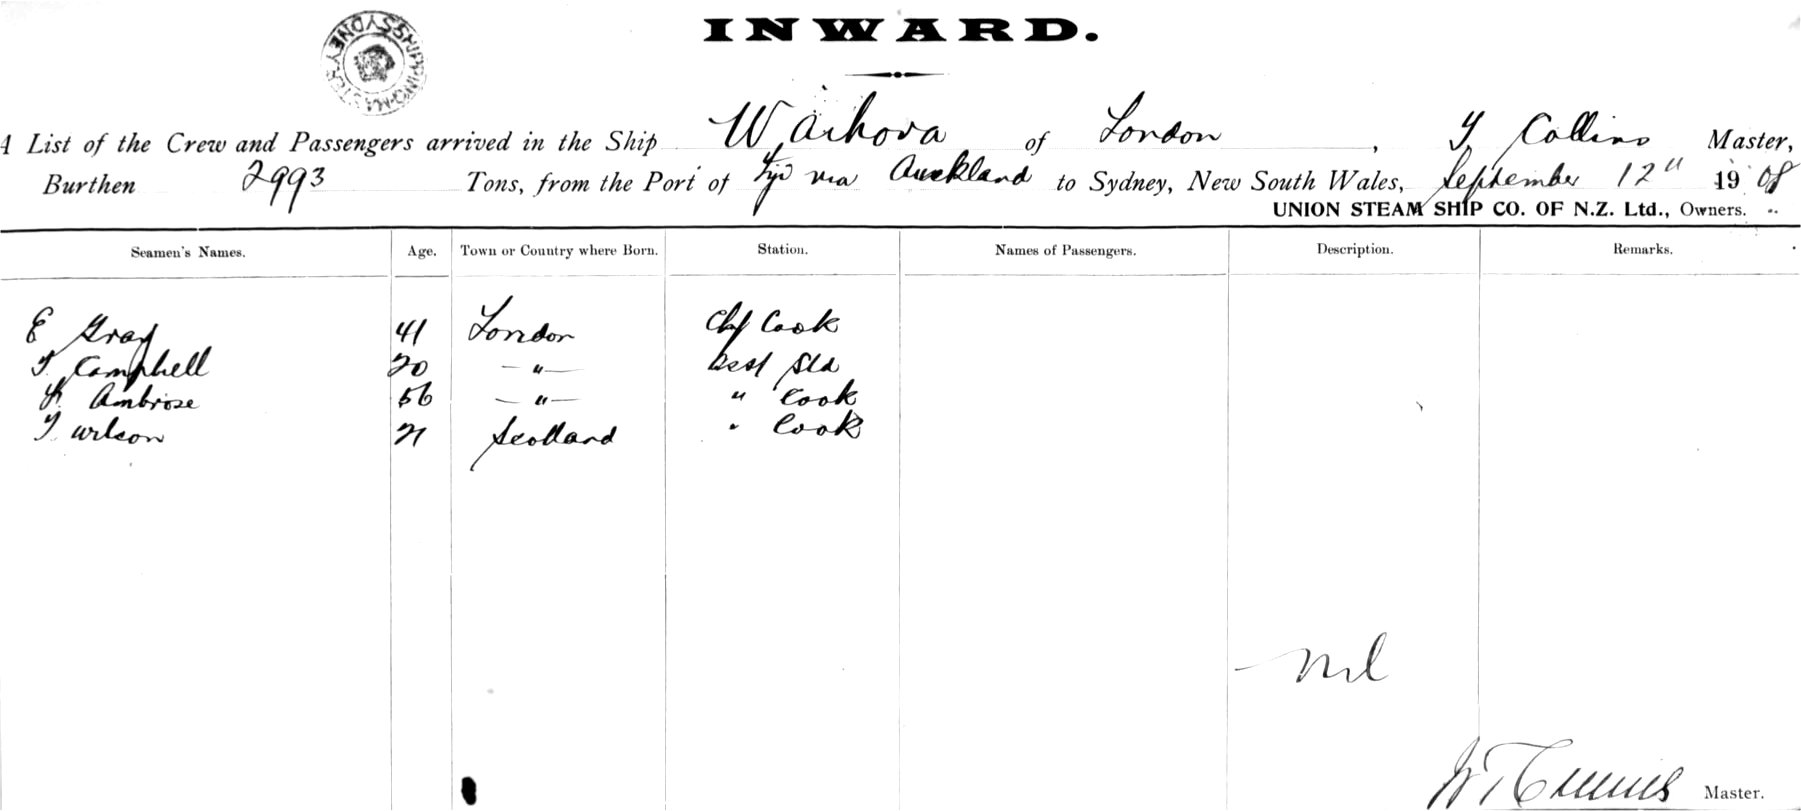 INWARD.
SHIPPING MASTER SYDNEY
A List of the Crew and Passengers arrived in the Ship Waihora of London, T Collins Master,
Burthen 2993 Tons, from the Port of Fiji via Auckland to Sydney, New South Wales, September 12" 1908
UNION STEAM SHIP CO. OF N.Z. Ltd., Owners.
Seamen's Names. Age. Town or Country where Born. Station. Names of Passengers. Description. Remarks.
E Gray 41 London Chf Cook
T. Campbell 20 — " —
Ambrose 56 — " — " Cook
T. Wilson 21 Scotland " Cook
Nil
Master.